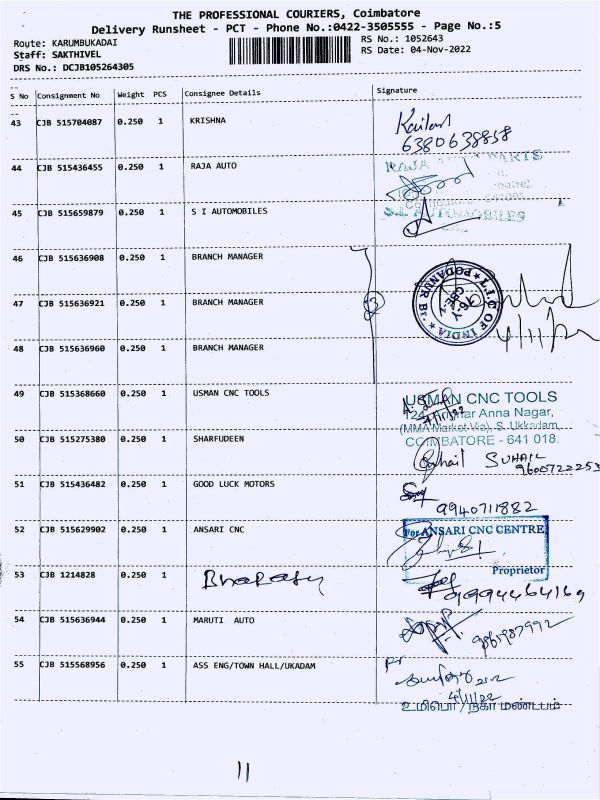 THE PROFESSIONAL COURIERS, Coimbatore
Delivery Runsheet - PCT - Phone No.:0422-3505555 - Page No.:5
Route: KARUMBUKADAI
RS No.: 1052643
Staff: SAKTHIVEL
RS Date: 04-Nov-2022
DRS No.: DCJB105264305
S No Consignment No Weight PCS Consignee Details Signature
43 CJB 515704087 0.250 1 KRISHNA
6380638858
44 CJB 515436455 0.250 1 RAJA AUTO
RAJA AUTO PARTS
45 CJB 515659879 0.250 1 S I AUTOMOBILES
S.I. AUTOMOBILES
46 CJB 515636908 0.250 1 BRANCH MANAGER
47 CJB 515636921 0.250 1 BRANCH MANAGER
L.I.C OF INDIA * PODANUR Br. *
4/11/22
48 CJB 515636960 0.250 1 BRANCH MANAGER
49 CJB 515368660 0.250 1 USMAN CNC TOOLS
USMAN CNC TOOLS
Anna Nagar,
(MMA Market Via), S. Ukkadam,
COIMBATORE - 641 018.
50 CJB 515275380 0.250 1 SHARFUDEEN
Suhail SUHAIL
9600722253
51 CJB 515436482 0.250 1 GOOD LUCK MOTORS
9940711882
52 CJB 515629902 0.250 1 ANSARI CNC
For ANSARI CNC CENTRE
Proprietor
53 CJB 1214828 0.250 1 Bharathy
9994464169
54 CJB 515636944 0.250 1 MARUTI AUTO
9865987992
55 CJB 515568956 0.250 1 ASS ENG/TOWN HALL/UKADAM
4/11/22
உமிபொ/நகர மண்டபம்
11